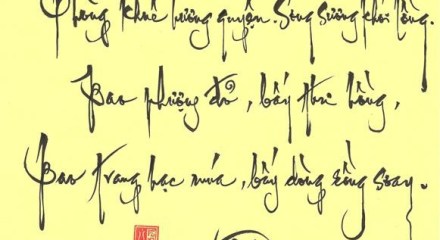 Phòng khuê hương quyện. Song sương khói lồng.
Bao phượng đỏ, bấy thơ hồng,
Bao trang hạc múa, bấy dòng rồng say.